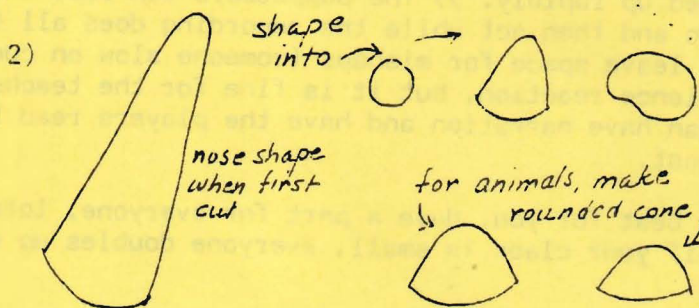 2)
shape
into
nose shape
when first
cut
for animals, make
rounded cone